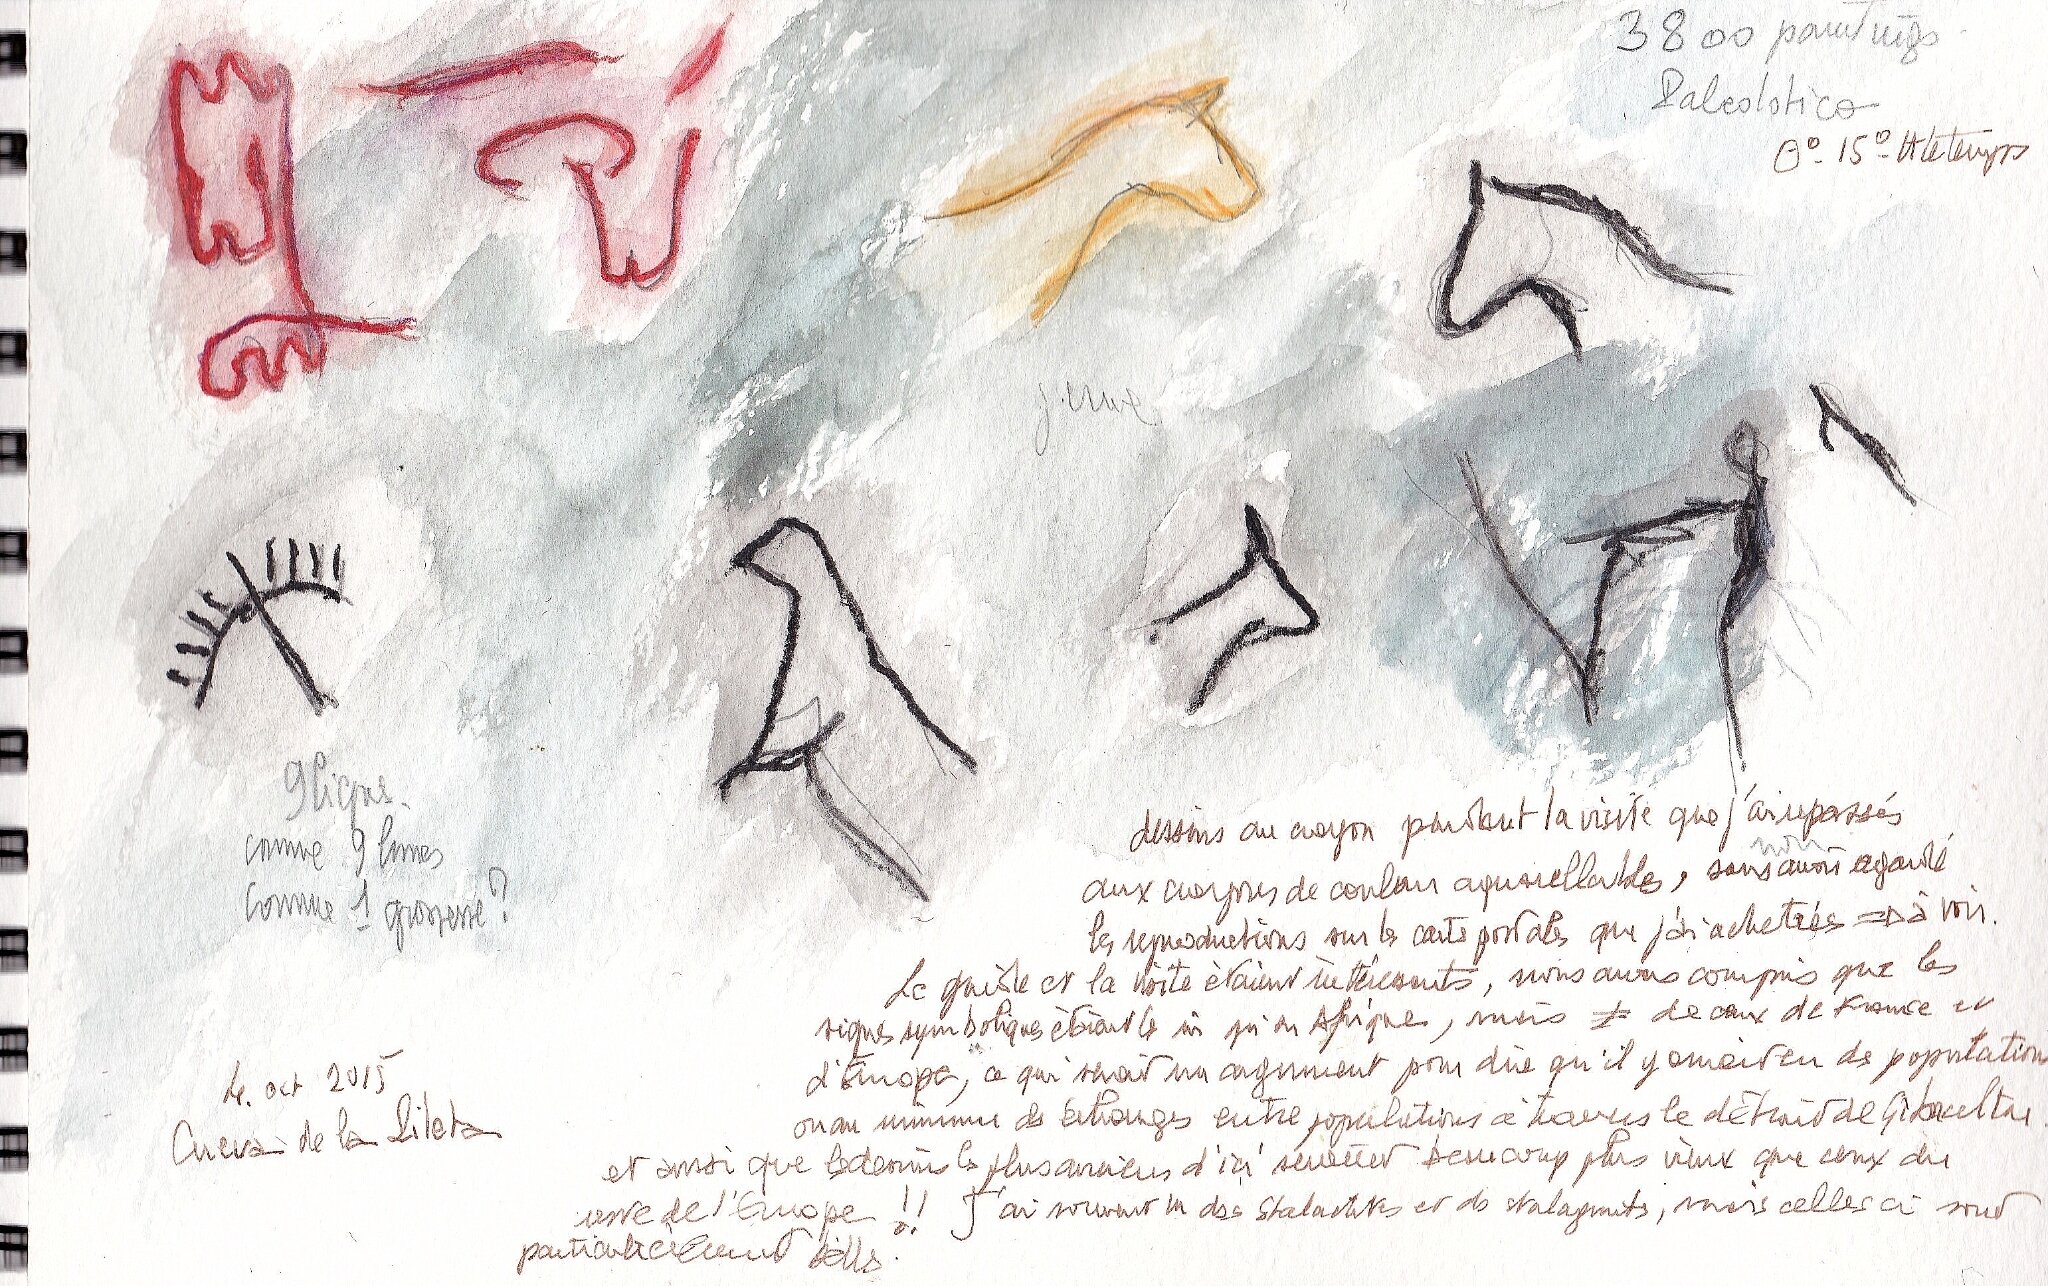 3800 peintures
Paleolotico
0° 15°
jument
9 lignes.
comme 9 lunes
comme 1 grossesse ?
dessins au crayon pendant la visite que j'ai repassés
aux crayons de couleur aquarellables, sans avoir regardé
non
les reproductions sur les cartes postales que j'ai achetées => à voir.
Le guide et la visite étaient intéressants, nous avons compris que les
signes symboliques étaient les ici qu'en Afrique, mais ≠ de ceux de France et
d'Europe, ce qui serait un argument pour dire qu'il y aurait eu des populations
ou au minimum des échanges entre populations à travers le détroit de Gibraltar
et ainsi que les dessins les plus anciens d'ici seraient beaucoup plus vieux que ceux du
reste de l'Europe !! J'ai souvent vu des stalactites et des stalagmites, mais celles ci sont
particulièrement belles.
4. oct 2015
Cueva de la Pileta